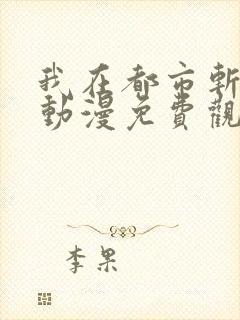 我在都市斬
動漫免費觀
李果